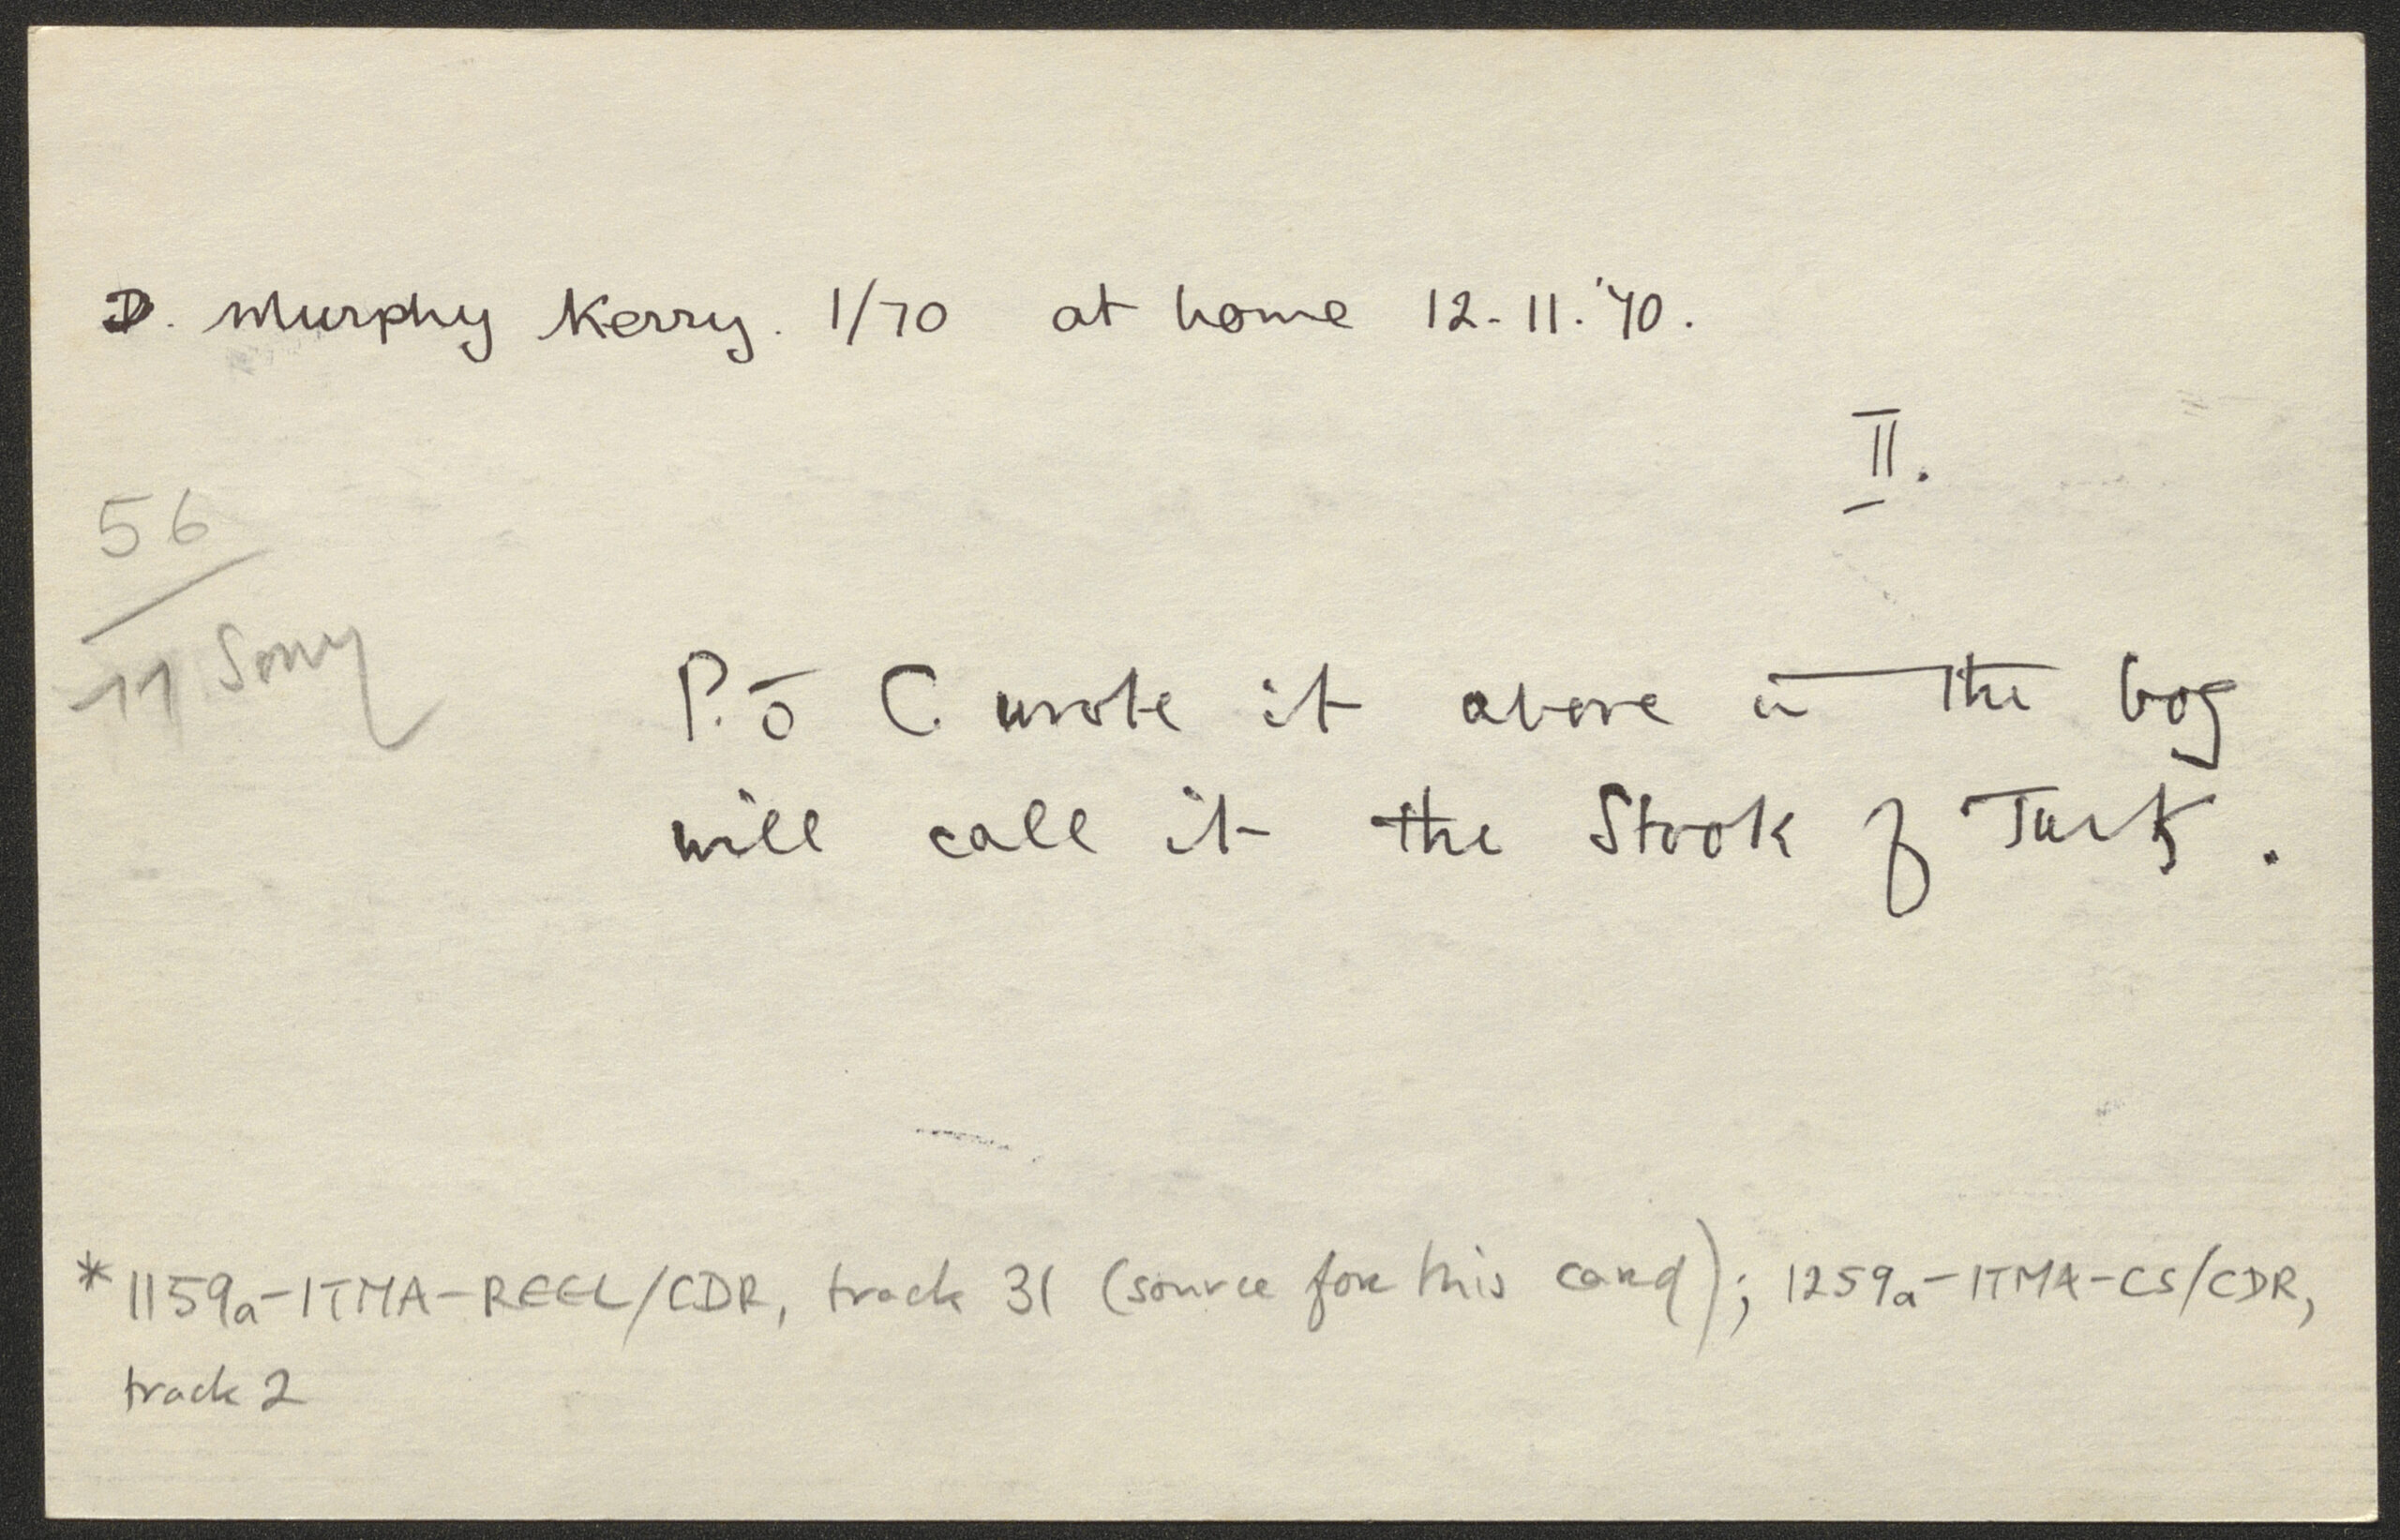 D. Murphy Kerry. 1/70 at home 12-11.'70.
II.
56
11 Sony
P. ó C. wrote it above in the bog
will call it the Stook of Turf.
* 1159a-ITMA-REEL/CDR, track 31 (source for this card); 1259a-ITMA-CS/CDR,
track 2